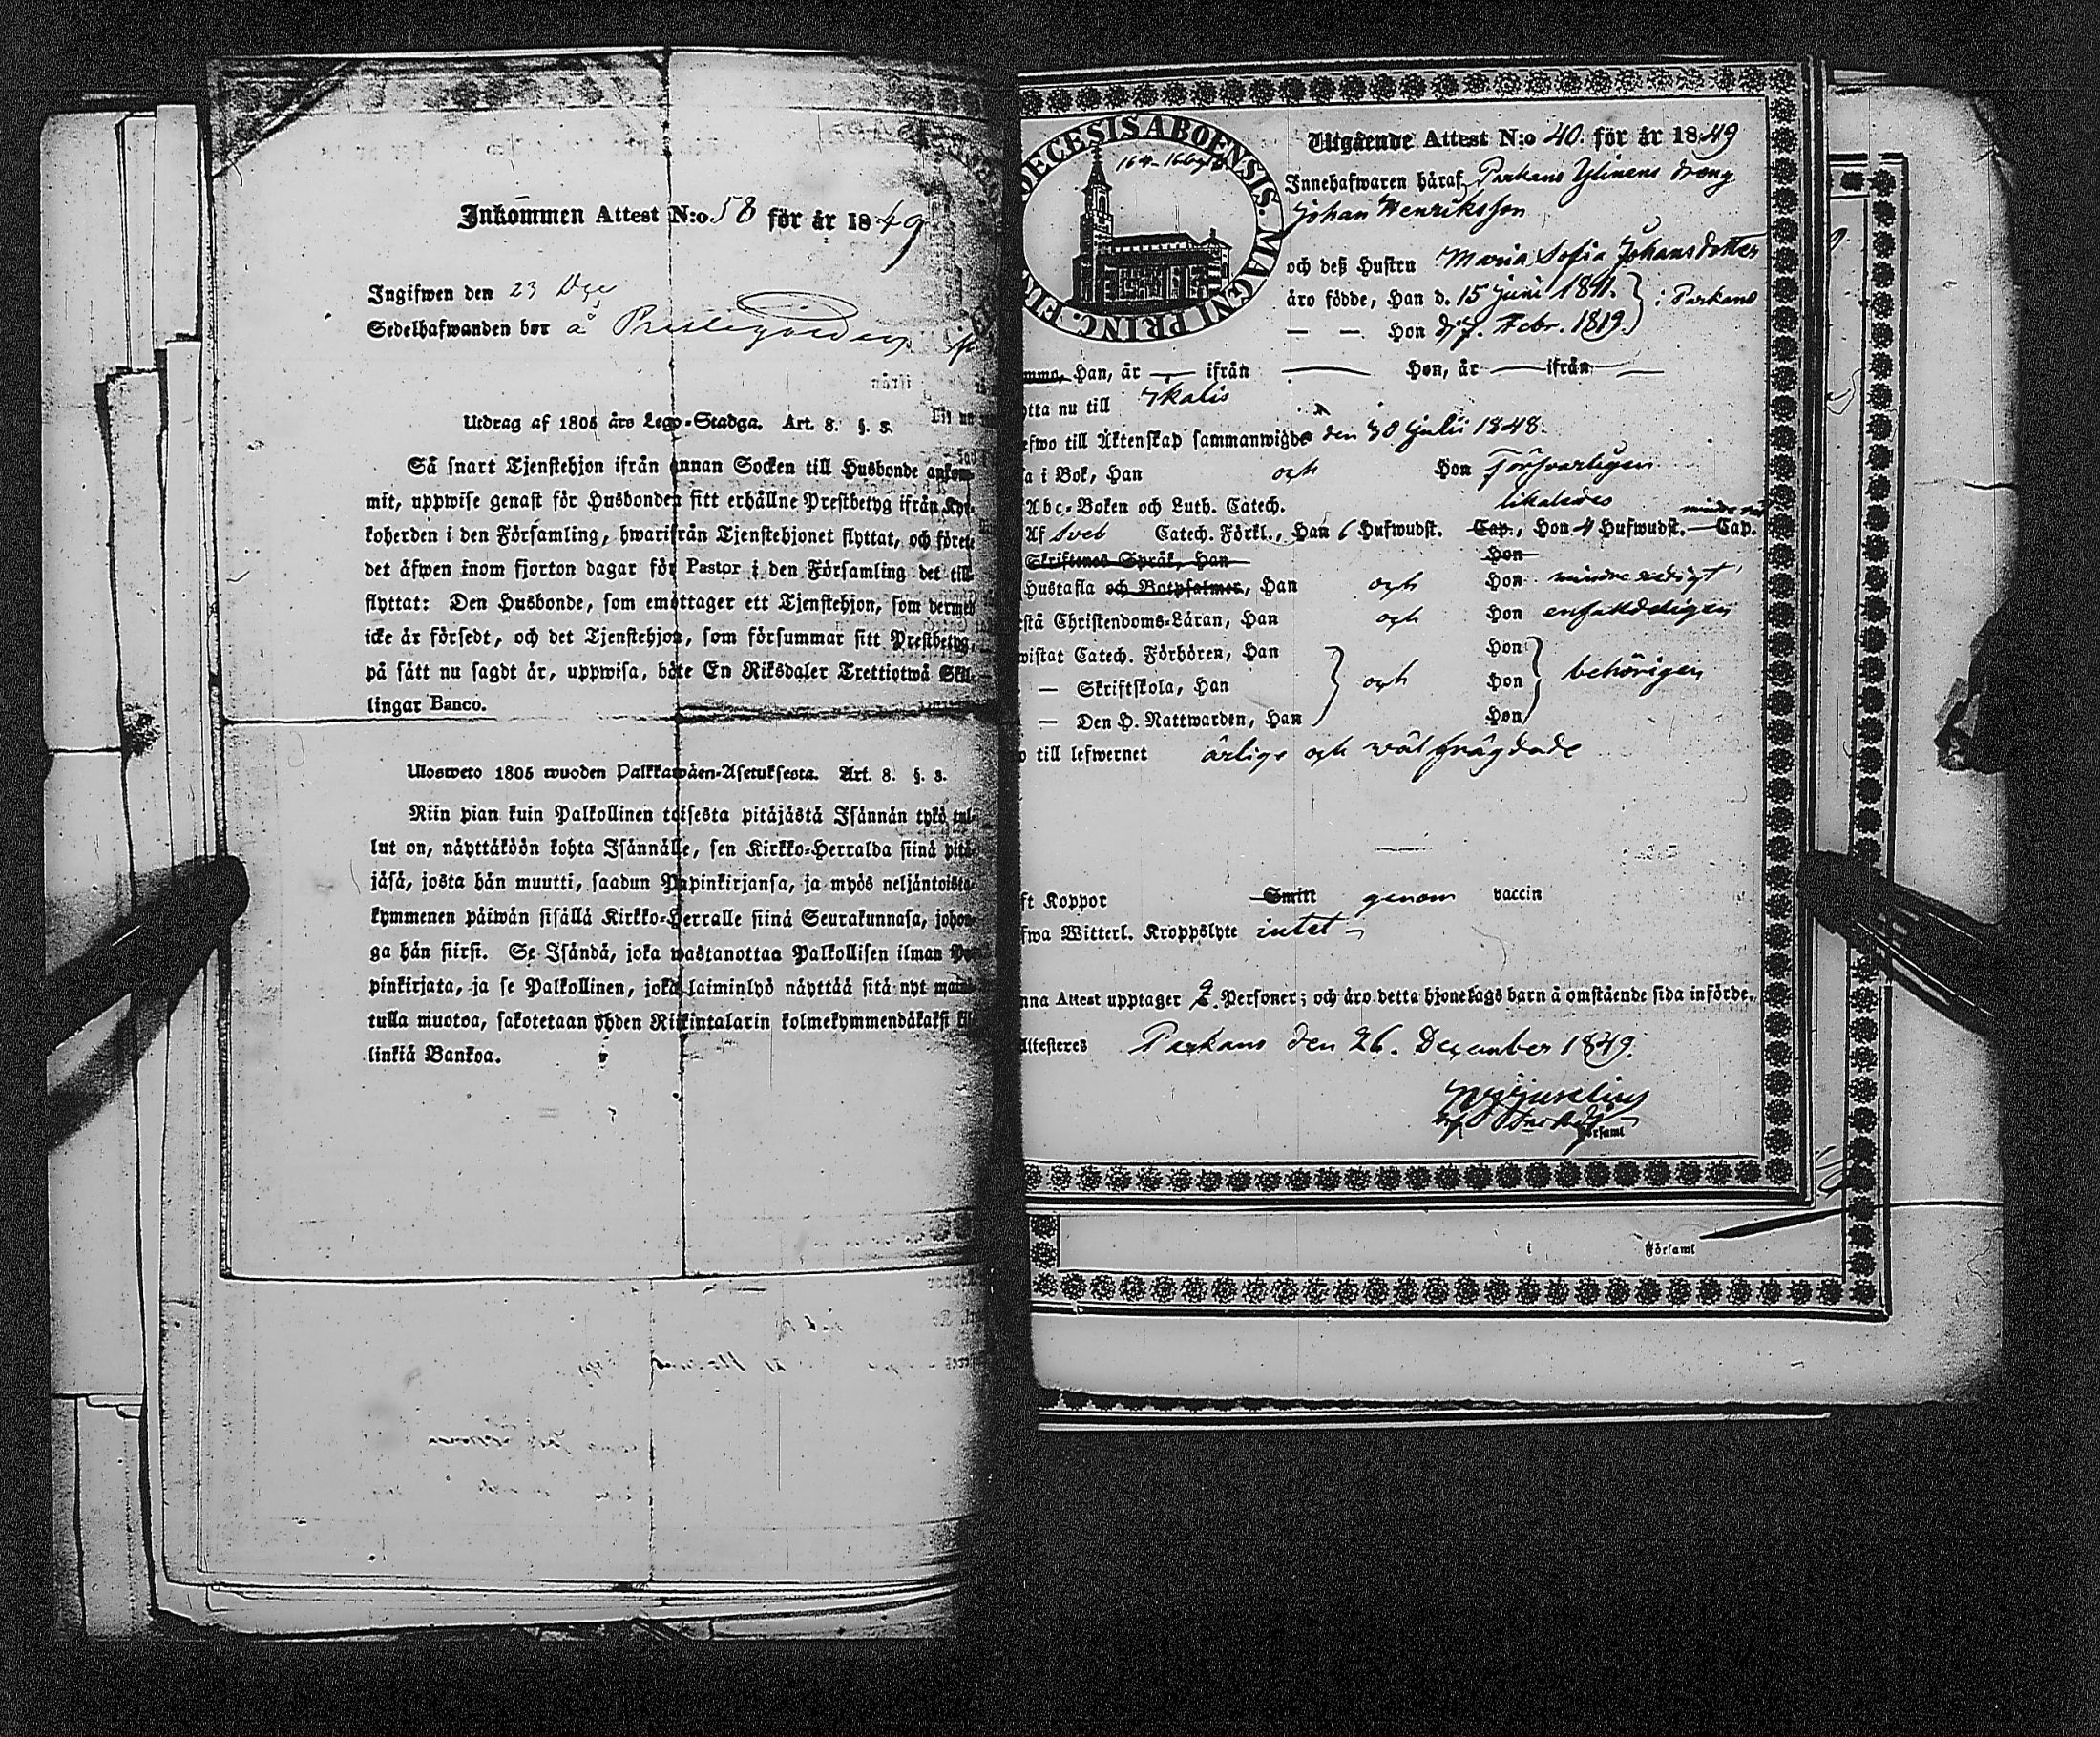 Inkommen Attest N:o 58 för år 1849
Ingifwen den 23
Sedelhafwanden bor å
Utdrag af 1805 års Lego-Stadga. Art. 8. §. 8.
Så snart Tjenstehjon ifrån annan Socken till Husbonde ankom-
mit, uppwise genast för Husbonden sitt erhållne Prestbetyg ifrån Kyr-
koherden i den Församling, hwarifrån Tjenstehjonet flyttat, och förete
det äfwen inom fjorton dagar för Pastor i den Församling det till-
flyttat: Den Husbonde, som emottager ett Tjenstehjon, som dermed
icke är försedt, och det Tjenstehjon, som försummar sitt Prestbetyg,
på sätt nu sagdt är, uppwisa, böte En Riksdaler Trettiotwå Skil-
lingar Banco.
Ulosweto 1805 wuoden Palkkawäen-Asetuksesta. Art. 8. §. 8.
Niin pian kuin Palkollinen toisesta pitäjästä Isännän tykö tul-
lut on, näyttäköön kohta Isännälle, sen Kirkko-Herralda siinä pitä-
jäsä, josta hän muutti, saadun Papinkirjansa, ja myös neljäntoista-
kymmenen päiwän sisällä Kirkko-Herralle siinä Seurakunnasa, johon-
ga hän siirsi. Se Isändä, joka wastanottaa Palkollisen ilman Pa-
pinkirjata, ja se Palkollinen, joka laiminlyö näyttää sitä nyt mainit-
tulla muotoa, sakotetaan yhden Riikintalarin kolmekymmendäkaksi kil-
linkiä Bankoa.
DECESIS ABOENSIS. MAGNI PRINC. FIN
Utgående Attest N:o 40. för år 1849
Innehafwaren häraf, Parkano Ylinens dräng
Johan Henriksson
och deß Hustru Maria Sofia Johansdotter
äro födde, Han d. 15 Juni 1811. } i Parkano
— — Hon d. 7. Febr. 1819.
Han, år — ifrån — Hon, år — ifrån —
tta nu till Ikalis
fwo till Äktenskap sammanwigde den 30 Julii 1848.
a i Bok, Han och Hon försvarligen
Abc-Boken och Luth. Catech. likaledes
Af Sveb Catech. Förkl., Han 6 Hufwudst. Cap., Hon 4 Hufwudst. — Cap.
Skriftenes Språk, Han Hon
Hustafla och Botpsalmer, Han och Hon mindre redigt
stå Christendoms-Läran, Han och Hon enfaldeligen
wistat Catech. Förhören, Han Hon
— Skriftskola, Han } och Hon } behörigen
— Den H. Nattwarden, Han Hon
till lefwernet ärlige och välfrägdade
ft Koppor Smitt genom vaccin
fwa Witterl. Kroppslyte intet
nna Attest upptager 2. Personer; och äro detta hjonelags barn å omstående sida införde.
Attesteres Parkano den 26. December 1849.
Församl
i Församl